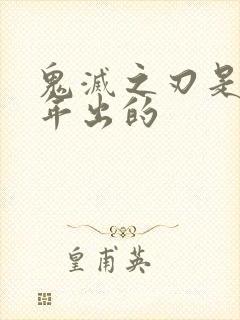 鬼滅之刃是
年出的
皇甫英